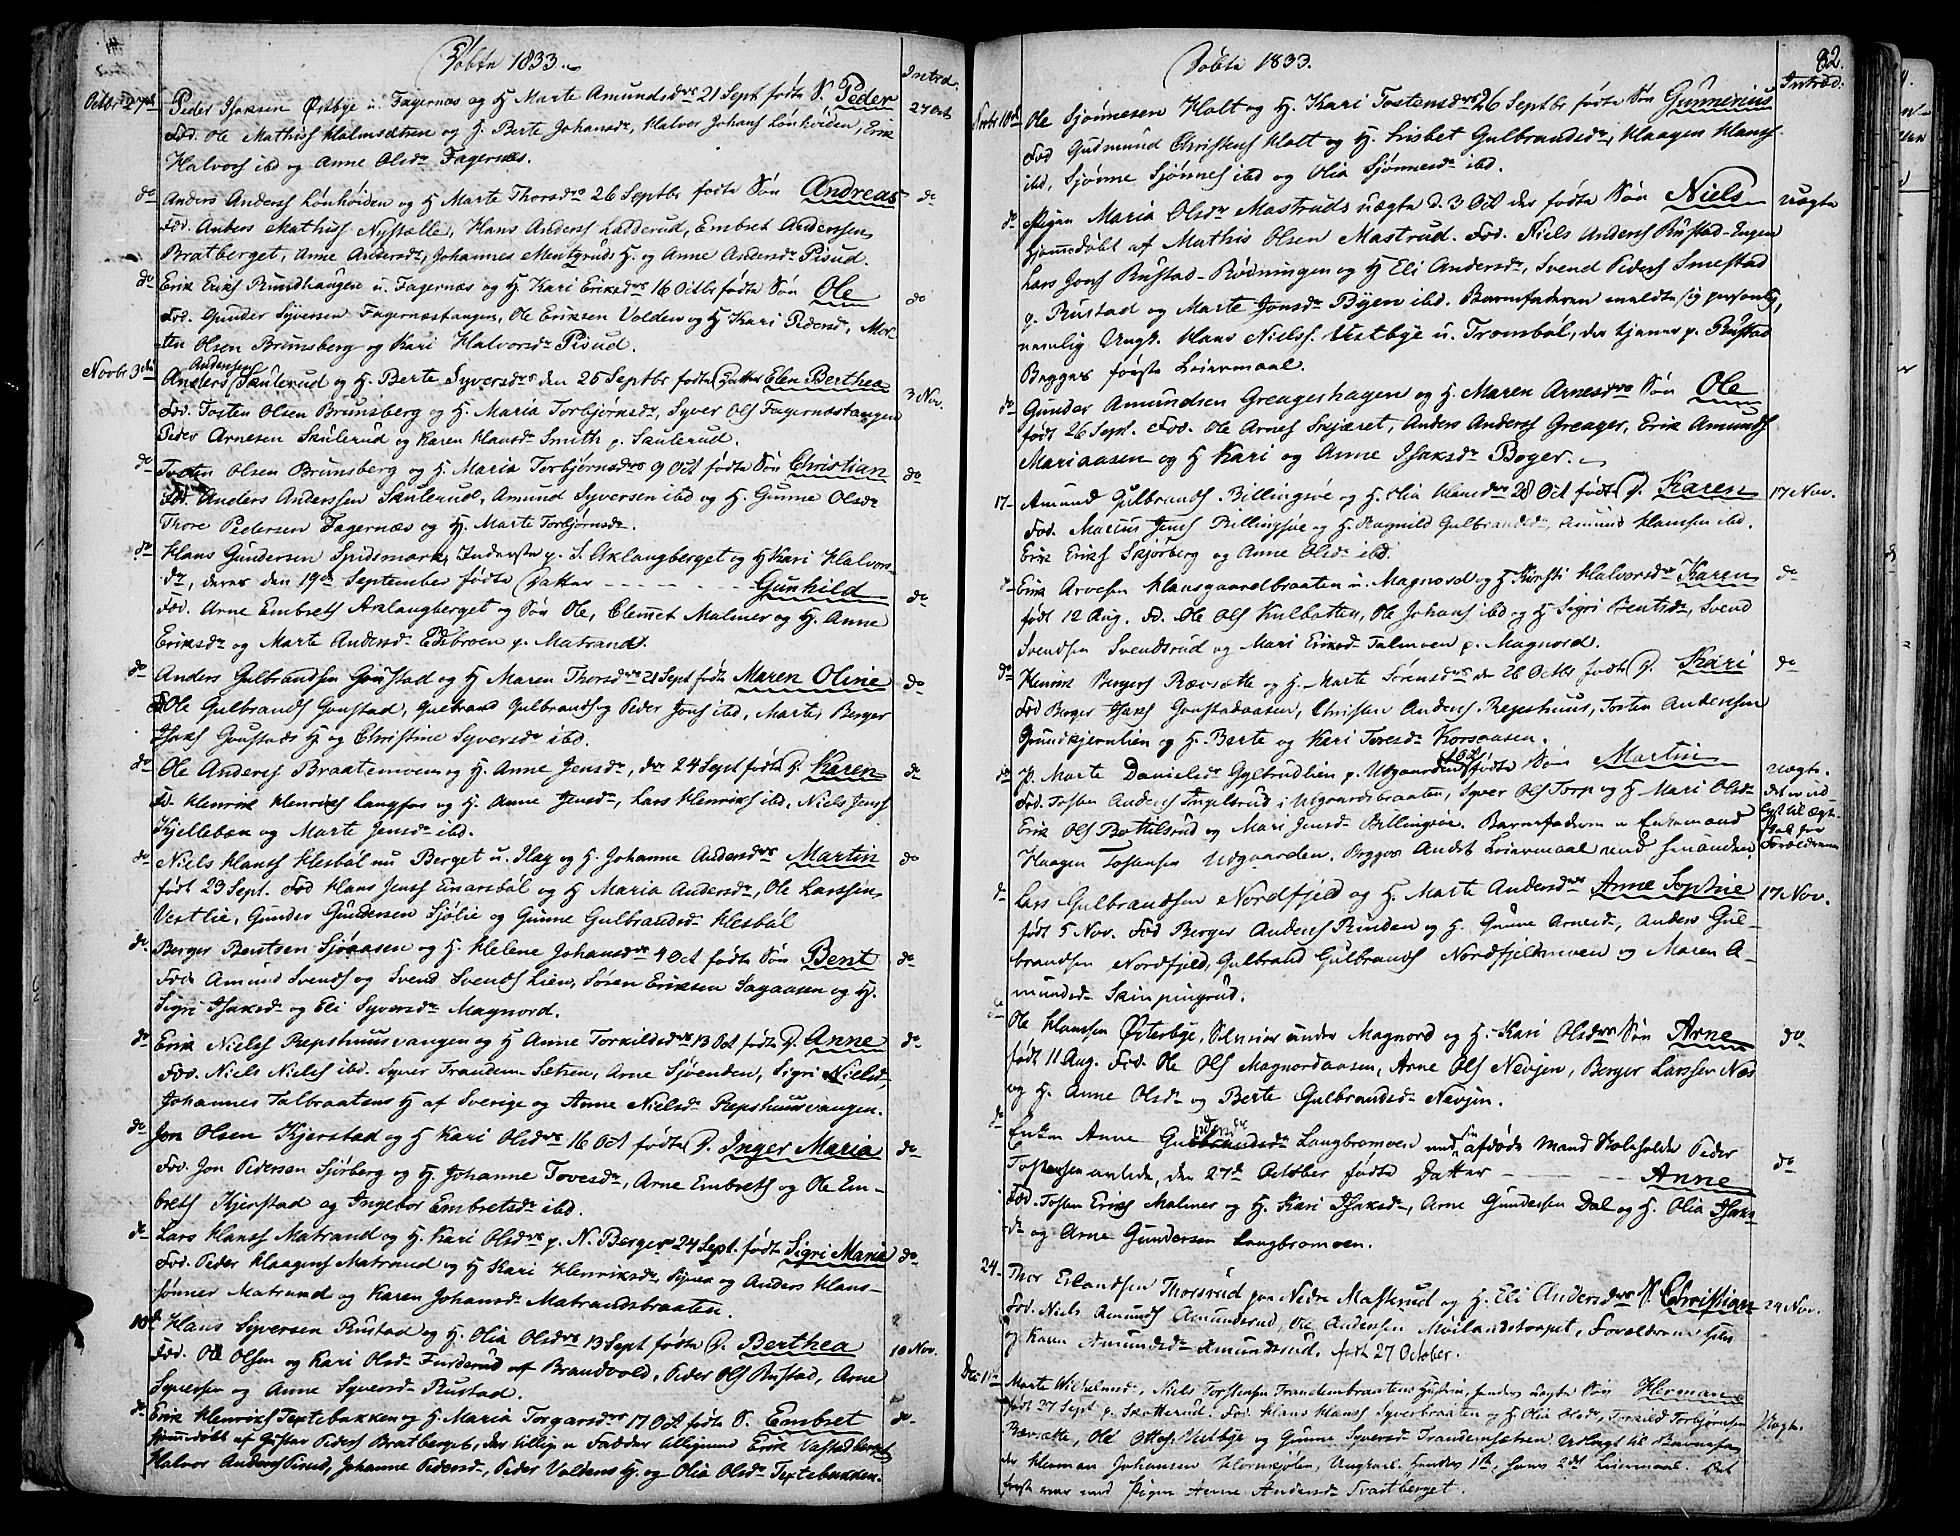 Døbte 1833.
Introd.
Octbr 27de Peder Isaksen Østbye u. Fagernæs og H. Marte Amundsdr 21 Sept fødte S. Peder 27 Oct
Fad. Ole Mathis Halmsætren og H. Berte Johansdr, Halvor Johans Lønhöiden, Erik
Halvors ibd og Anne Olsdr Fagernæs.
do Anders Anders Lönhöiden og H Marte Thorsdr 26 Septbr fødte Søn Andreas do
Fad. Anders Mathis Nysælle, Hans Anders Ladderud, Embret Anderssen
Bratberget, Anne Andersdr, Johannes Mentzruds H. og Anne Andersdr Pisud.
do Erik Eriks Rundhaugen u. Fagernæs og H Kari Eriksdr 16 Octbr fødte Søn Ole do
Fad. Gunder Syversen Fagernæstangen, Ole Eriksen Volden og H Kari Pedersd, Mor-
ten Olsen Brunsberg og Kari Halvorsdr Pisud.
Novbr 3de Anders Andersen Skulerud og H. Berte Syversdr den 25 Septbr fødte Datter Elen Berthea 3 Nov.
Fad. Tosten Olsen Brunsberg og H. Maria Torbjørnsdr, Syver Ols Fagernæstangen
Peder Arnesen Skulerud og Karen Hansdr Smith p. Skulerud.
do Tosten Olsen Brunsberg og H. Maria Torbjørnsdr 9 Oct fødte Søn Christian do
Fad. Anders Anderssen Skulerud, Amund Syversen ibd og H. Gunne Olsdr
Thore Pedersen Fagernæs og H. Marte Torbjørnsdr.
do Hans Gundersen Spidsmark, Inderste p. S. Aklangberget og H Kari Halvors-
dr, deres den 19de September fødte Datter - - - - Gunhild do
Fad. Arne Embrets Axlangberget og Søn Ole, Clemet Malmer og H. Anne
Eriksdr og Marte Andersdr Edsbroen p. Matrand.
do Anders Gulbrandsen Goustad og H Maren Thorsdr 21 Sept fødte Maren Oline do
F Ole Gulbrands Goustad, Gulbrand Gulbrands og Peder Jons ibd, Marte, Berger
Isaks Goustads H og Christine Syversdr ibd.
do Ole Anders Braatenmoen og H. Anne Jensdr, den 24 Sept fødte D. Karen do
Fd. Henrik Henriks Langfos og H. Anne Jensdr, Lars Henriks ibd, Niels Jens
Kjellebæk og Marte Jensdr ibd.
do Niels Hans Klesbøl nu Berget u. Ilag og H. Johanne Andersdr Martin do
født 23 Sept. Fad Hans Jens Einarsbøl og H Maria Andersdr, Ole Larssen
Vestlie, Gunder Gundersen Sjølie og Gunne Gulbrandsdr Klesbøl
do Berger Bentsen Sjøaasen og H. Helene Johansdr 4 Oct fødte Søn Bent do
Fad. Amund Svends og Svend Svends Lien, Søren Eriksen Sagaasen og H.
Sigri Isaksdr og Eli Syversdr Magnord.
do Erik Niels Repshuusvangen og H Anne Torkildsdr 13 Oct fødte D. Anne do
Fad. Niels Niels ibd. Syver Trandem-Sætren, Arne Sjøenden, Sigri Nielsd-
Johannes Talbraatens H af Sverige og Anne Nielsdr Repshuusvangen.
do Jon Olsen Kjerstad og H Kari Olsdr 16 Oct fødte D. Inger Maria do
Fad. Jon Pedersen Sjøberg og H. Johanne Tovesdr, Arne Embrets og Ole Em-
brets Kjerstad og Ingebor Embretsdr ibd.
do Lars Hans Matrand og H. Kari Olsdr p. N. Berger 24 Sept. fødte Sigri Maria do
Fad. Peder Haagens Matrand og H Kari Henriksdr, Syver og Anders Hans-
sønner Matrand og Karen Johansdr Matrandsbraaten.
10de Hans Syversen Rustad og H. Olia Olsdr 13 Sept fødte D. Berthea 10 Nov.
Fad. Ole Olsen og Kari Olsdr Furderud af Brandvold, Peder Ols Rustad, Arne
Syversen og Anne Syversdr Rustad.
do Erik Henriks Textebakken og H. Maria Torgersdr 17 Oct fødte S. Embret do
hjemmedøbt af Gustav Peders Bratberget, der tillige er Fadder tilligemed Erik
Halvor Anders Pisud, Johanne Pedersdr, Peder Voldens H. og Olia Olsdr Textebakken.
Døbte 1833. 82.
Introd.
Novbr 10de Ole Sjønnesen Holt og H. Kari Tostensdr 26 Septbr fødte Søn Gunnerius
Fad Gudmund Christens Holt og H. Lisbet Gulbrandsdr, Haagen Hans
ibd, Sjønne Sjønnes ibd og Olia Sjønnesdr ibd.
do Pigen Maria Olsdr Mastruds uægte d. 3 Oct der fødte Søn Niels uægte
hjemmedøbt af Mathis Olsen Mastrud. Fad. Niels Anders Rustad-Engen
Lars Jons Rustad-Rødningen og H Eli Andersdr, Svend Peders Smestad
p. Rustad og Marte Jonsdr Byen ibd. Barnefaderen meldte sig personlig,
nemlig Ungk. Hans Niels Vestbye u. Trombøl, der tjener p. Rustad
Begges første Leiermaal.
do Gunder Amundsen Greagershagen og H. Maren Arnesdr Søn Ole
født 26 Sept. Fad. Ole Arnes Skjæret, Anders Anders Greager, Erik Amunds
Mariaasen og H Kari og Anne Isaksdr Boger.
17- Amund Gulbrands Billingsøe og H. Olia Hansdr 28 Oct fødte D. Karen 17 Nov.
Fad. Marius Jens Billingsøe og H. Ragnild Gulbrandsdr, Amund Hansen ibd.
Erik Eriks Skjørberg og Anne Olsdr ibd.
do Erik Arvesen Hansgaardbraaten u. Magnord og H Kirsti Halvorsdr Karen do
født 12 Aug. Fd. Ole Ols Kulbotten, Ole Johans ibd og H Sigri Bentsdr, Svend
Svendsen Svendsrud og Mari Eriksd Talmoen p. Magnord.
do Henrik Bergers Rævsætte og H. Marte Sørensdr den 26 Octbr fødte D. Kari do
Fad Berger Isaks Goustadaasen, Christen Anders. Repshuus, Tosten Andersen
Grundkjernlien og H. Berte og Kari Toresdr Korsaasen.
do P. Marte Danielsdr Gyltrudlien p. Udgaarden fødte Søn Martin uægte.
Fad. Tosten Anders Ingelsrud i Udgaardsbraaten, Syver Ols Torp og H Mari Olsdr
Erik Ols Bottilsrud og Mari Jensdr Billingsøe. Barnefaderen er Enkemand
Haagen Tostensen Udgaarden. Begges Andet Leiermaal med hinanden.
do Lars Gulbrandsen Nordfjeld og H. Marte Andersdr Anne Sophie 17 Nov.
født 5 Nov. Fad Berger Anders Runden og H. Gunne Arnesdr, Anders Gul-
brandsen Nordfjeld, Gulbrand Gulbrands Nordfjeldmoen og Maren A-
mundsd- Skinpingrud.
do Ole Hanssen Østerbye, Selveier under Magnord og H. Kari Olsdr Søn Arne do
født 11 Aug. Fad. Ole Ols Magnordaasen, Arne Ols Nevjen, Berger Larssen Næs
og H. Anne Olsdr og Berte Gulbrandsdr Nevjen.
do Enken Anne Langbromoen med sin afdøde Mand Peder
Tostensen avlede, den 27de October fødte Datter - - - Anne do
Fad. Tosten Eriks Malmer og H. Kari Isaksdr, Arne Gundersen Dal og H. Olia Isaks-
dr og Arne Gundersen Langbromoen.
24. Thor Erlandsen Thorsrud paa Nedre Mastrud og H. Eli Andersdr S. Christian 24 Nov.
Fad. Niels Amunds Amundsrud, Ole Andersen Møilandstorpet, Forældrene
og Karen Amundsdr Amundsrud. født 27 October.
Dec 1ste Marte Wilhelmsd, Niels Torstensen Trandembraatens Hustru, hendes uægte Søn Herman
født 27 Sept p. Skotterud. Fad. Hans Hans Syverbraaten og H Olia Olsdr, Torkild Torbjørnsen
Rævsætte, Ole Ottes. Vestbye og Gunne Syversdr Trandemsætren Udlagt til Barnefa- Uægte.
der Herman Johansen Ungkarl. Hendes 1ste, hans 2det Leiermaal. Det
første var med Pigen Anne Andersdr Tvastberget.